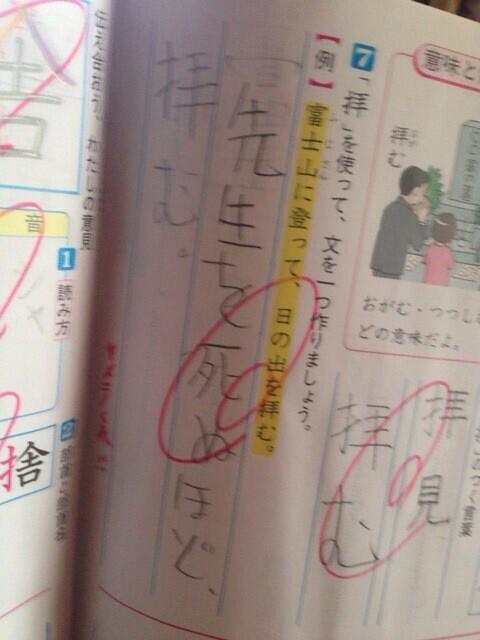 意味と
拝む
おが
おがむ・つつし
どの意味だよ。
のつく言葉
拝見
拝む
7 「拝」を使って、文を一つ作りましょう。
【例】富士山に登って、日の出を拝む。
ふじさん
先生を死ぬほど、
拝む。
伝え合おう、わたしの意見
舎
音
1 読み方
2
捨